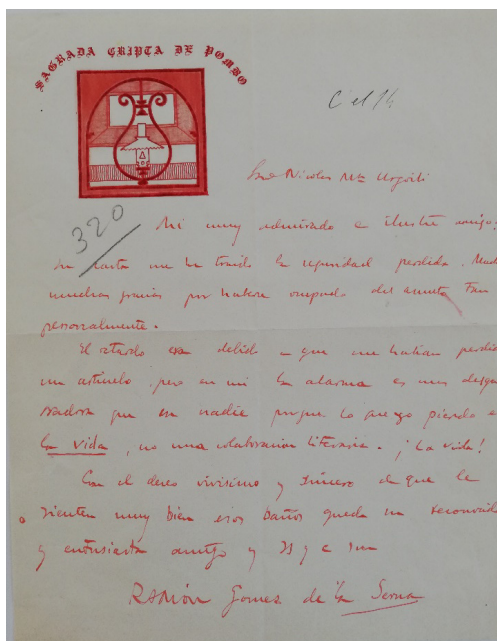 SAGRADA CRIPTA DE POMBO
C el 14
Sr. D. Nicolas Mª Urgoiti
320
Mi muy admirado e ilustre amigo:
su carta me ha traido la seguridad perdida. Much
muchas gracias por haberse ocupado del asunto tan
personalmente.
El retardo era debido a que me habian perdid
un articulo, pero en mi la alarma es mas desga
rradora que en nadie porque lo que yo pierdo e
la vida, no una colaboracion literaria. ¡La vida!
Con el deseo vivisimo y sincero de que le
sienten muy bien esos baños queda su reconocid
y entusiasta amigo y
RAMÓN Gomez de la Serna